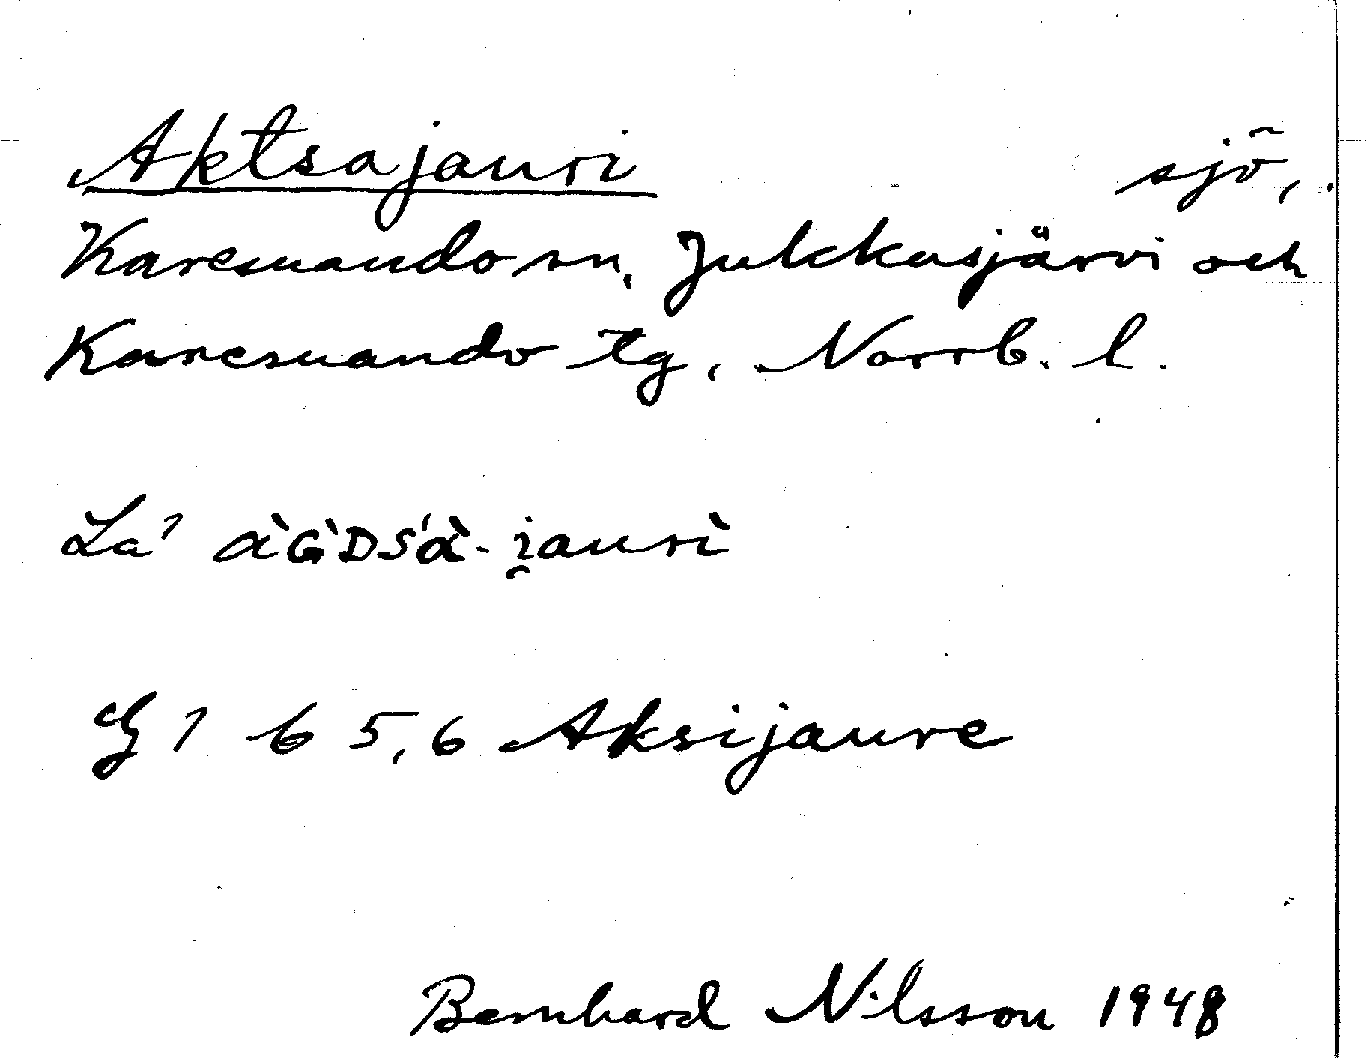 Aktsajauri sjö,
Karesuando sn, Jukkasjärvi och
Karesuando tg, Norrb. l.
La' àG̀DS'à-i̯aurì
G 1 b 5,6 Aksijaure
Bernhard Nilsson 1948